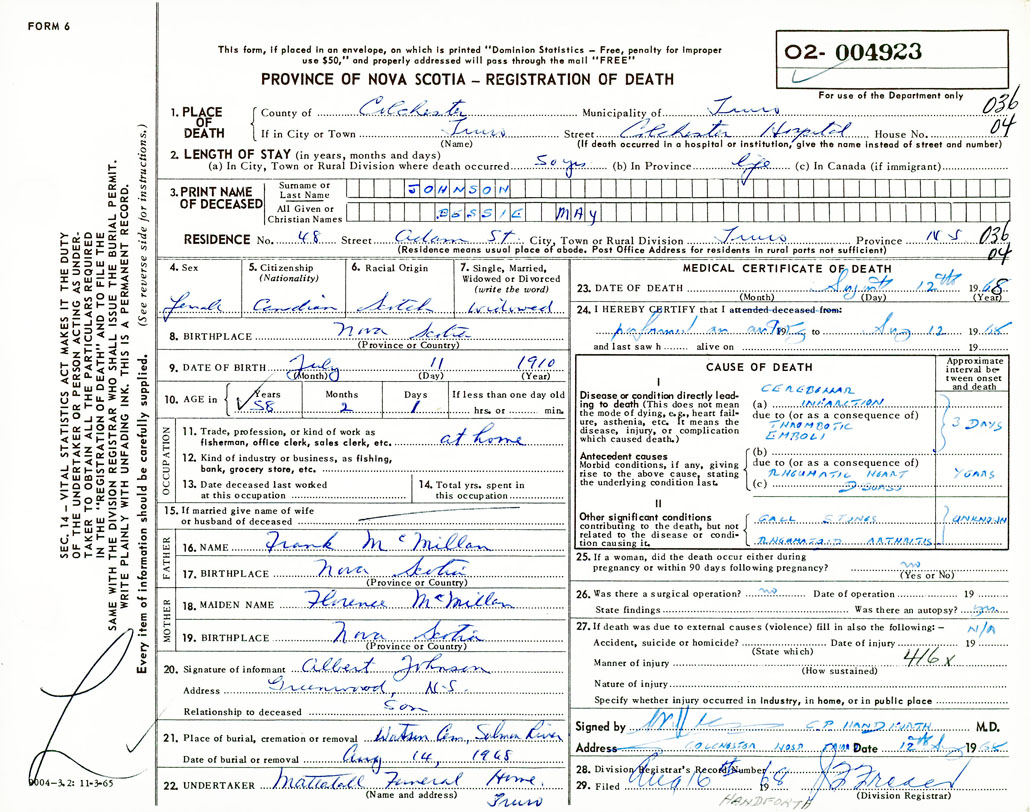 FORM 6
This form, if placed in an envelope, on which is printed "Dominion Statistics – Free, penalty for improper
use $50," and properly addressed will pass through the mail "FREE"
PROVINCE OF NOVA SCOTIA – REGISTRATION OF DEATH
02- 004923
For use of the Department only
036
04
1. PLACE OF DEATH
County of Colchester Municipality of Truro
If in City or Town Truro Street Colchester Hospital House No.
(Name) (If death occurred in a hospital or institution, give the name instead of street and number)
2. LENGTH OF STAY (in years, months and days)
(a) In City, Town or Rural Division where death occurred 50 yrs (b) In Province life (c) In Canada (if immigrant)
3. PRINT NAME OF DECEASED
Surname or Last Name JOHNSON
All Given or Christian Names BESSIE MAY
RESIDENCE No. 48 Street Adam St City, Town or Rural Division Truro Province N S
036
04
(Residence means usual place of abode. Post Office Address for residents in rural parts not sufficient)
4. Sex
female
5. Citizenship
(Nationality)
Canadian
6. Racial Origin
Scotch
7. Single, Married,
Widowed or Divorced
(write the word)
widowed
8. BIRTHPLACE Nova Scotia
(Province or Country)
9. DATE OF BIRTH July 11 1910
(Month) (Day) (Year)
10. AGE in
Years Months Days If less than one day old
58 2 1 hrs. or min.
OCCUPATION
11. Trade, profession, or kind of work as
fisherman, office clerk, sales clerk, etc. at home
12. Kind of industry or business, as fishing,
bank, grocery store, etc.
13. Date deceased last worked
at this occupation
14. Total yrs. spent in
this occupation
15. If married give name of wife
or husband of deceased
FATHER
16. NAME Frank McMillan
17. BIRTHPLACE Nova Scotia
(Province or Country)
MOTHER
18. MAIDEN NAME Florence McMillan
19. BIRTHPLACE Nova Scotia
(Province or Country)
20. Signature of informant Albert Johnson
Address Greenwood, N.S.
Relationship to deceased Son
21. Place of burial, cremation or removal Watson Cem, Salmon River
Date of burial or removal Aug 14, 1968
22. UNDERTAKER Mattatall Funeral Home.
(Name and address) Truro
MEDICAL CERTIFICATE OF DEATH
23. DATE OF DEATH 12th 1968
(Month) (Day) (Year)
24. I HEREBY CERTIFY that I attended deceased from:
performed an to Aug 12 1968
and last saw h alive on 19
CAUSE OF DEATH
Approximate
interval be-
tween onset
and death
I
Disease or condition directly lead-
ing to death (This does not mean
the mode of dying, e.g., heart fail-
ure, asthenia, etc. It means the
disease, injury, or complication
which caused death.)
CEREBELLAR
(a) INFARCTION
due to (or as a consequence of)
THROMBOTIC
EMBOLI
3 DAYS
Antecedent causes
Morbid conditions, if any, giving
rise to the above cause, stating
the underlying condition last.
(b)
due to (or as a consequence of)
RHEUMATIC HEART
(c) DISEASE
YEARS
II
Other significant conditions
contributing to the death, but not
related to the disease or condi-
tion causing it.
GALL STONES
RHEUMATOID ARTHRITIS
UNKNOWN
25. If a woman, did the death occur either during
pregnancy or within 90 days following pregnancy? no
(Yes or No)
26. Was there a surgical operation? no Date of operation 19
State findings Was there an autopsy? yes
27. If death was due to external causes (violence) fill in also the following: –
N/A
Accident, suicide or homicide? Date of injury 19
(State which)
Manner of injury 416x
(How sustained)
Nature of injury
Specify whether injury occurred in Industry, in home, or in public place
Signed by C.P. HANDFORTH M.D.
Address COLCHESTER HOSP TRURO Date 12th Aug 1968
28. Division Registrar's Record Number
29. Filed Aug 16th 1968
(Division Registrar)
HANDFORTH
SEC. 14 – VITAL STATISTICS ACT MAKES IT THE DUTY
OF THE UNDERTAKER OR PERSON ACTING AS UNDER-
TAKER TO OBTAIN ALL THE PARTICULARS REQUIRED
IN THE "REGISTRATION OF DEATH" AND TO FILE THE
SAME WITH THE DIVISION REGISTRAR WHO SHALL ISSUE THE BURIAL PERMIT.
WRITE PLAINLY WITH UNFADING INK. THIS IS A PERMANENT RECORD.
Every item of information should be carefully supplied. (See reverse side for instructions.)
9004-3.2: 11-3-65